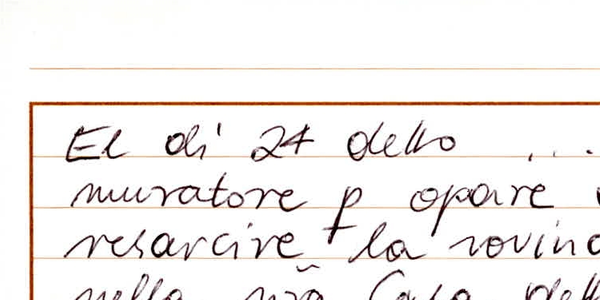 El di 24 detto ...
muratore p opare
resarcire la rovina
nella nrã Casa dell